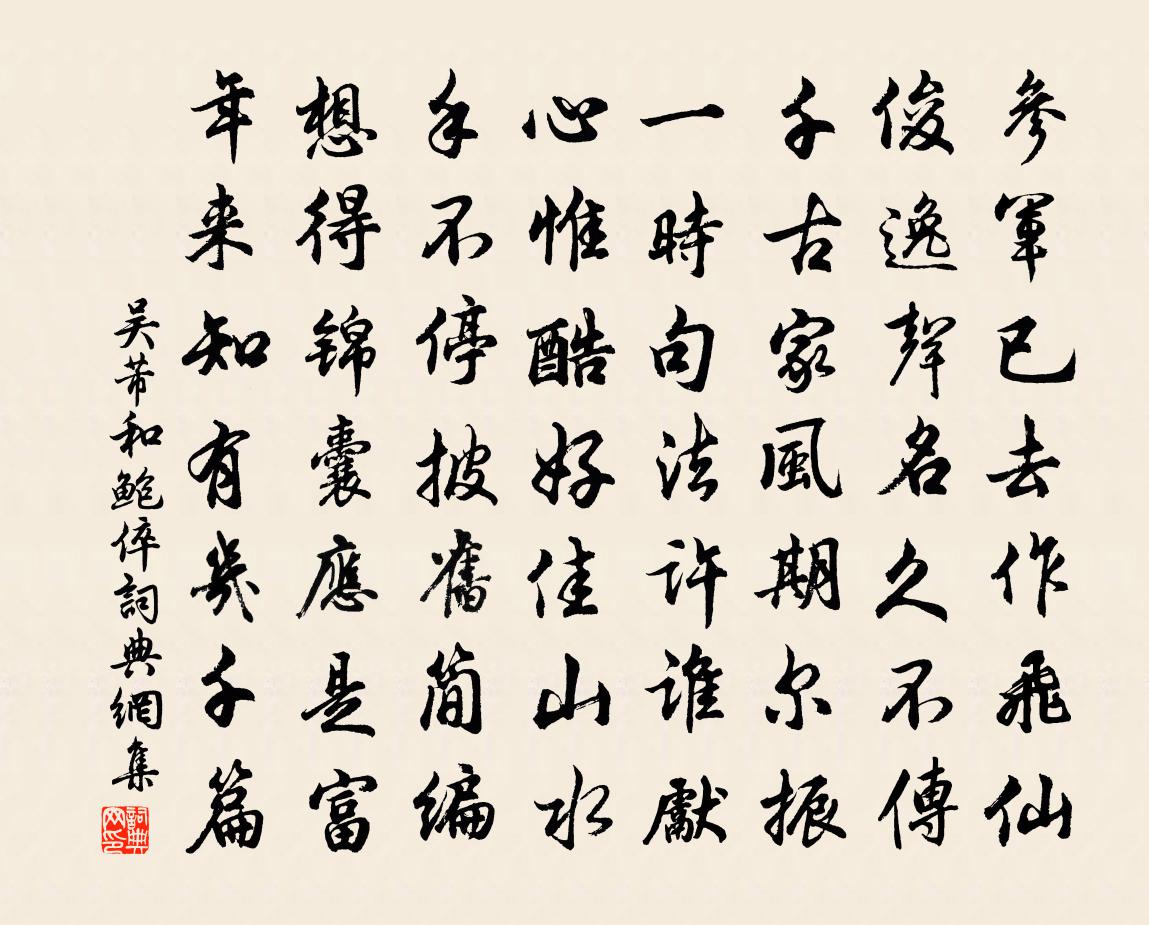 參軍已去作飛仙
俊逸聲名久不傳
千古家風期尔振
一時句法許誰獻
心惟酷好佳山水
手不停披舊簡編
想得錦囊應是富
年来知有幾千篇
吴芾和鲍倅詞典網集
詞典
网印